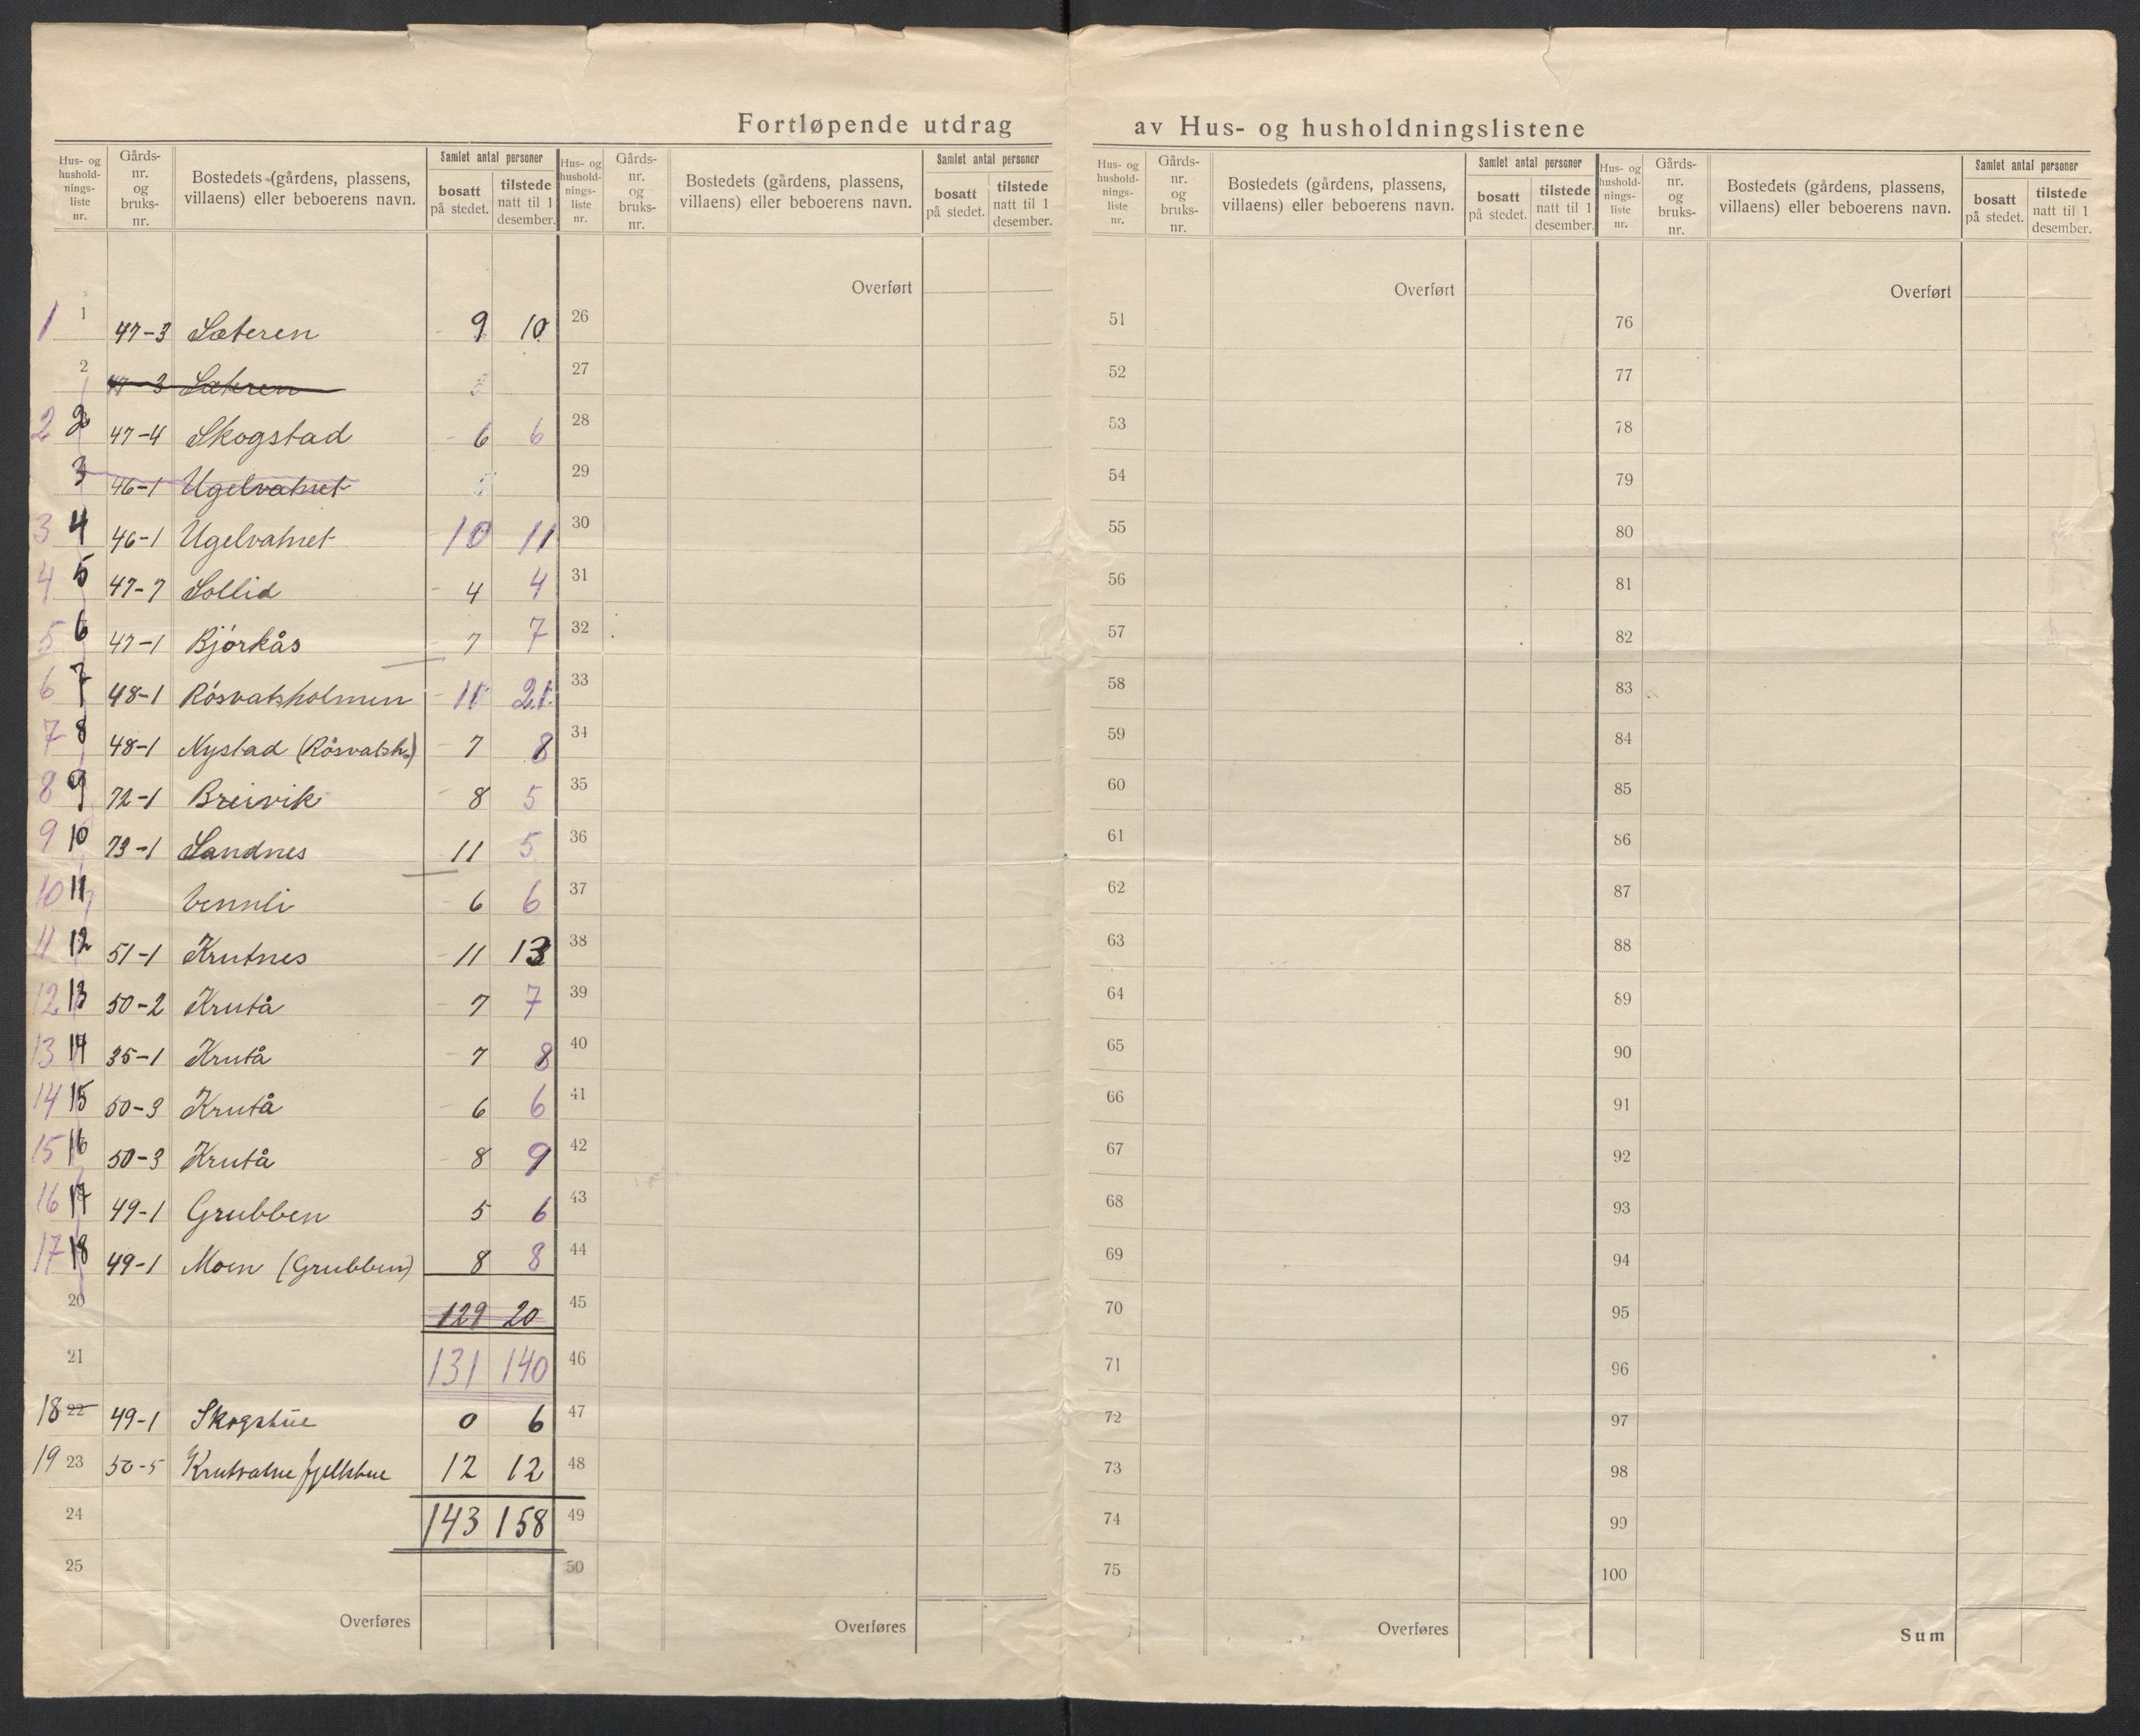 Fortløpende utdrag av Hus- og husholdningslistene
Hus- og hushold-nings-liste nr. Gårds-nr. og bruks-nr. Bostedets (gårdens, plassens, villaens) eller beboerens navn. Samlet antal personer bosatt på stedet. tilstede natt til 1 desember.
Hus- og hushold-nings-liste nr. Gårds-nr. og bruks-nr. Bostedets (gårdens, plassens, villaens) eller beboerens navn. Samlet antal personer bosatt på stedet. tilstede natt til 1 desember.
Hus- og hushold-nings-liste nr. Gårds-nr. og bruks-nr. Bostedets (gårdens, plassens, villaens) eller beboerens navn. Samlet antal personer bosatt på stedet. tilstede natt til 1 desember.
Hus- og hushold-nings-liste nr. Gårds-nr. og bruks-nr. Bostedets (gårdens, plassens, villaens) eller beboerens navn. Samlet antal personer bosatt på stedet. tilstede natt til 1 desember.
Overført Overført Overført
1 1 47-3 Sæteren 9 10 26 51 76
2 47-3 Sæteren 27 52 77
2 2 47-4 Skogstad 6 6 28 53 78
3 46-1 Ugelvatnet 29 54 79
3 4 46-1 Ugelvatnet 10 11 30 55 80
4 5 47-7 Sollid 4 4 31 56 81
5 6 47-1 Bjørkås 7 7 32 57 82
6 7 48-1 Røsvatsholmen 11 21 33 58 83
7 8 48-1 Nystad (Røsvatsh.) 7 8 34 59 84
8 9 72-1 Breivik 8 5 35 60 85
9 10 73-1 Sandnes 11 5 36 61 86
10 11 Vennli 6 6 37 62 87
11 12 51-1 Krutnes 11 13 38 63 88
12 13 50-2 Krutå 7 7 39 64 89
13 14 35-1 Krutå 7 8 40 65 90
14 15 50-3 Krutå 6 6 41 66 91
15 16 50-3 Krutå 8 9 42 67 92
16 17 49-1 Grubben 5 6 43 68 93
17 18 49-1 Moen (Grubben) 8 8 44 69 94
20 129 20 45 70 95
21 131 140 46 71 96
18 22 49-1 Skogstue 0 6 47 72 97
19 23 50-5 Krutvatne fjellstue 12 12 48 73 98
24 143 158 49 74 99
25 50 75 100
Overføres Overføres Overføres Sum